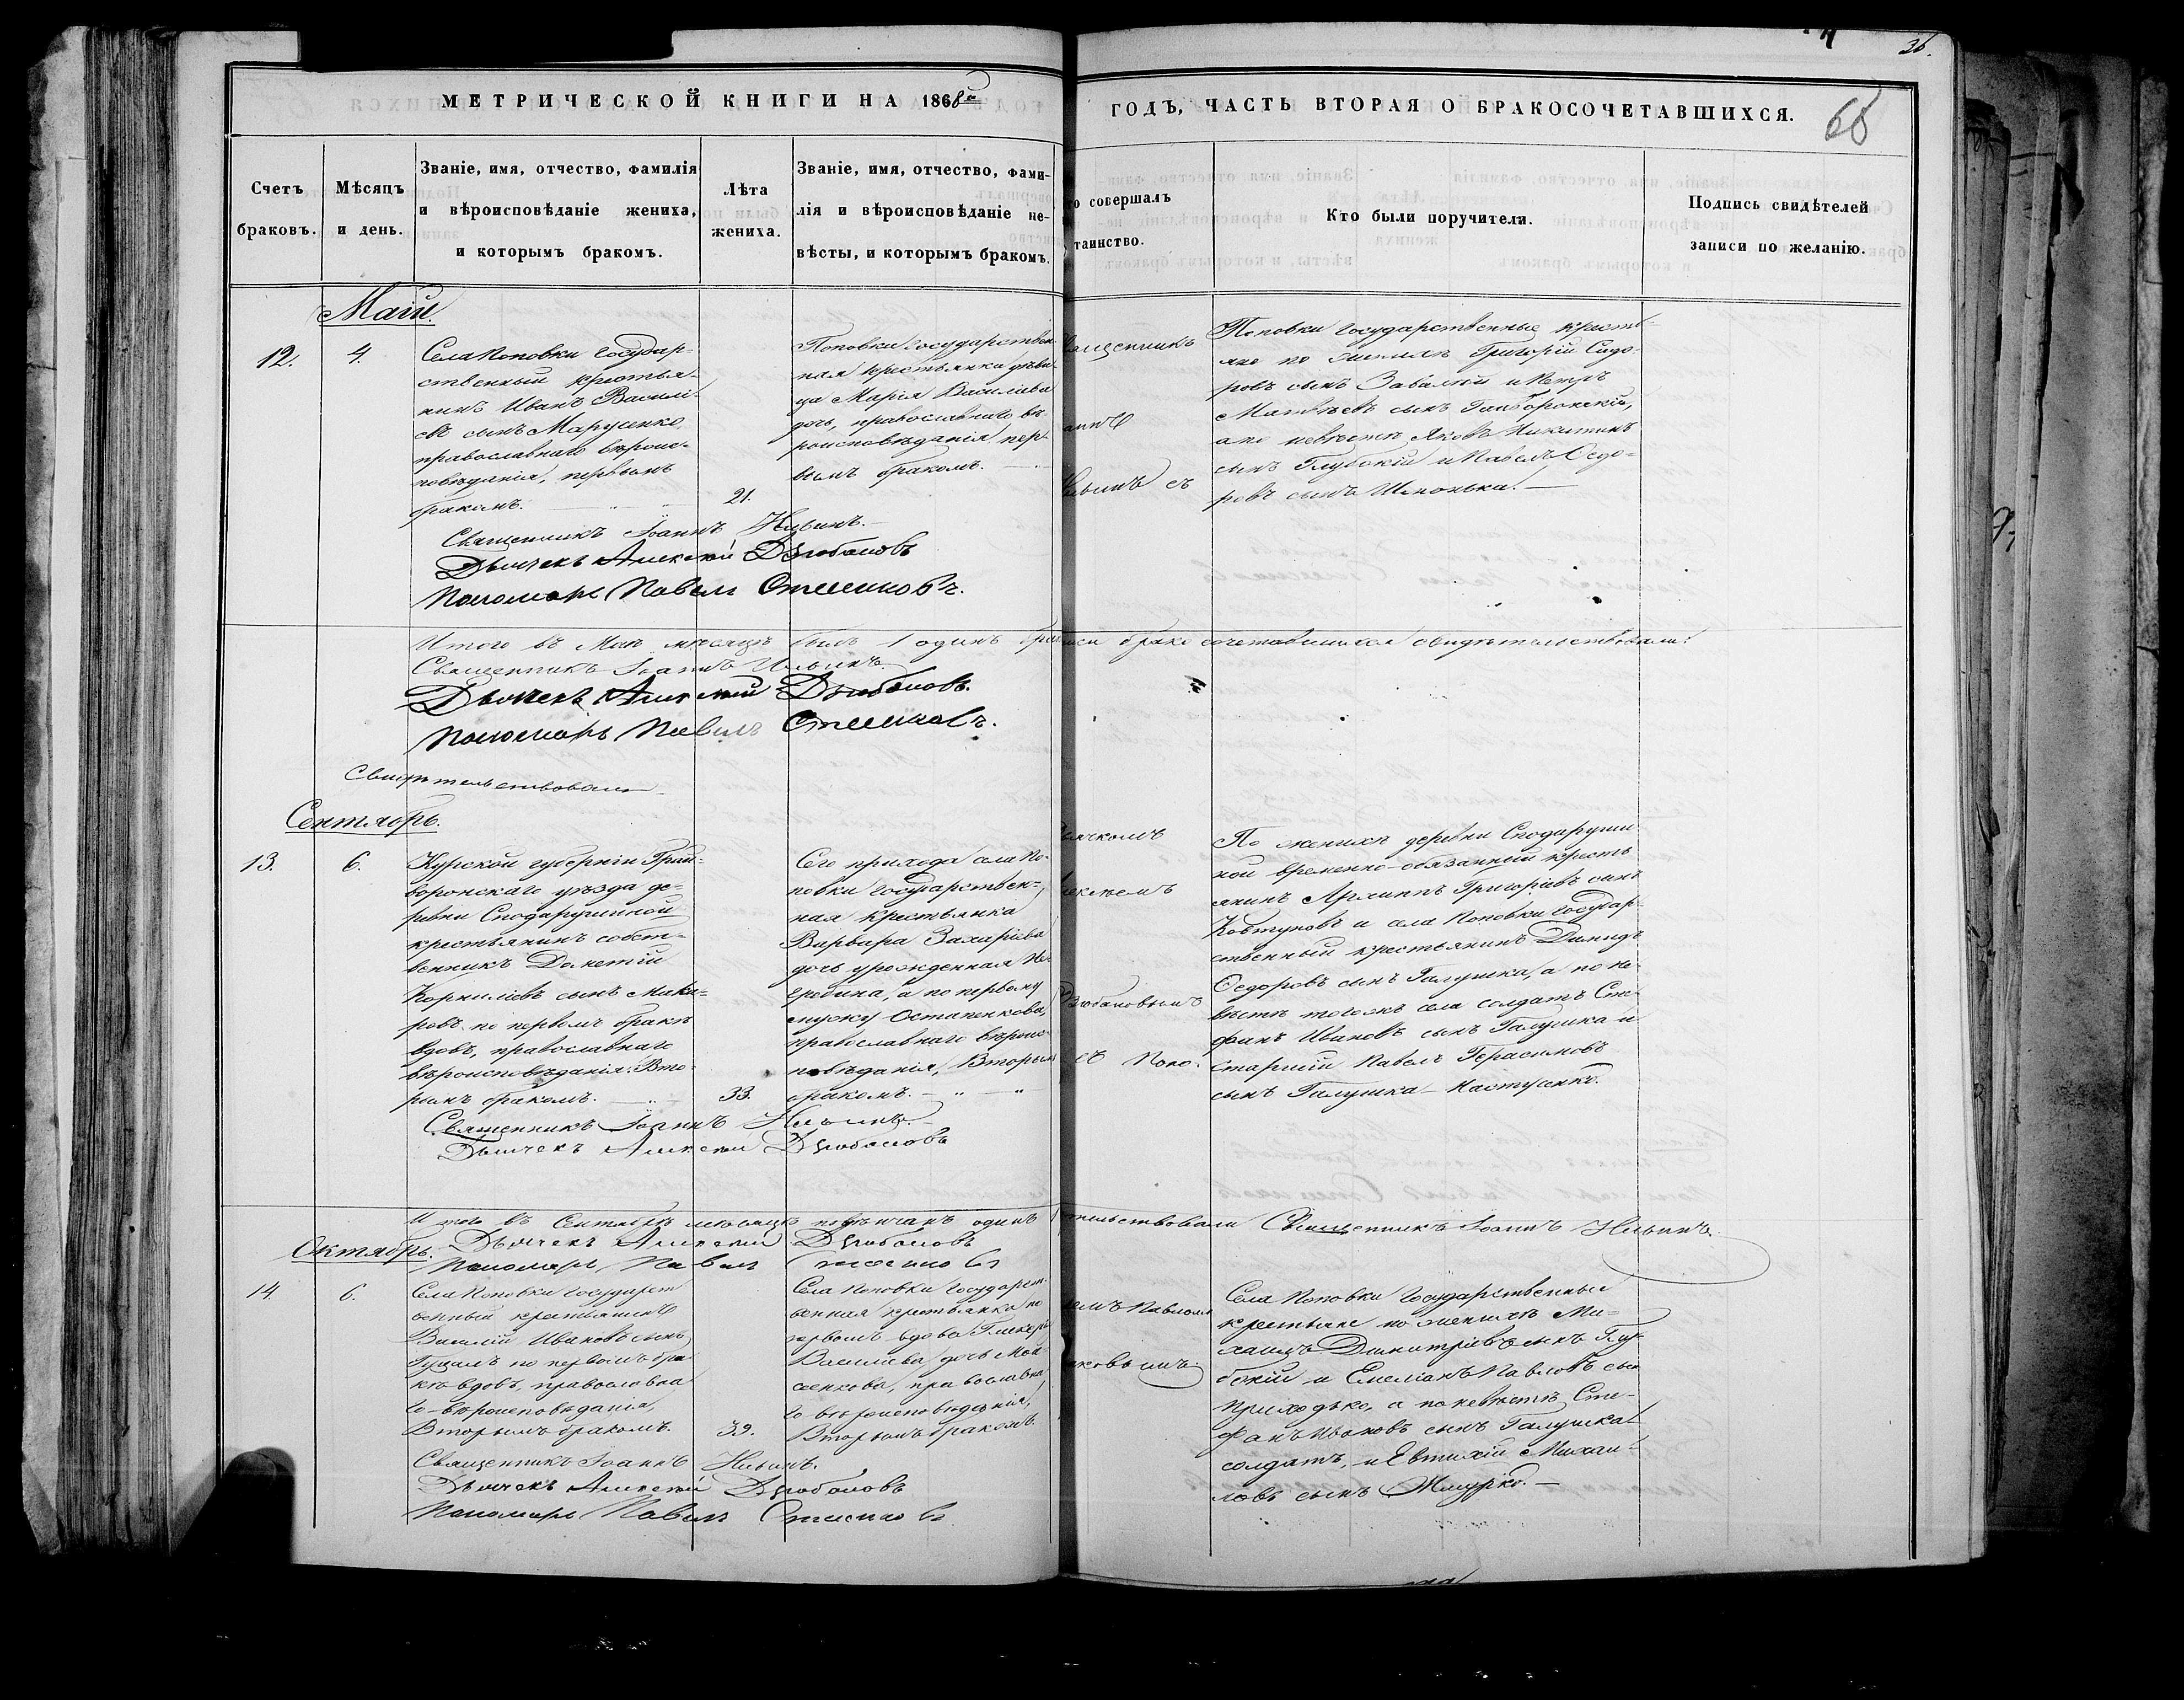 36.
68
МЕТРИЧЕСКОЙ КНИГИ НА 1868й
ГОДЪ, ЧАСТЬ ВТОРАЯ О БРАКОСОЧЕТАВШИХСЯ.
Счетъ
браковъ.
Мѣсяцъ
и день.
Званіе, имя, отчество, фамилія
и вѣроисповѣданіе жениха,
и которымъ бракомъ.
Лѣта
жениха.
Званіе, имя, отчество, фами-
лія и вѣроисповѣданіе не-
вѣсты, и которымъ бракомъ.
то совершалъ
таинство.
Кто были поручители.
Подпись свидѣтелей
записи по желанію.
Маій.
12.
4.
Села Поповки государ-
ственный крестья-
нинъ Иванъ Василі-
евъ сынъ Марущенко,
православнаго вѣроис-
повѣданія, первымъ
бракомъ.
21.
Поповки государствен
ная крестьянка дѣви-
ца Марія Василіева
дочь, православнаго вѣ-
роисповѣданія пер-
вымъ бракомъ.
вященникъ
аннъ
льинъ съ
Поповки государственные кресть-
яне по женихѣ Григорій Сидо-
ровъ сынъ и Петръ
Матвѣевъ сынъ
а по невѣстѣ Яковъ Никитинъ
сынъ Глубокій и Павелъ Ѳедо-
ровъ сынъ
Священникъ Іоаннъ Ильинъ.
Дьячекъ Алексѣй Дзюбановъ
Пономарь Павелъ
Итого въ Маѣ мѣсяцѣ былъ 1 одинъ бра
браке сочетавшихся свидѣтельствовали:
Священникъ Іоаннъ Ильинъ.
Дьячекъ Алексѣй Дзюбановъ.
Пономарь Павелъ
Свидѣтельствовали
Сентябрь.
13.
6.
Курской губерніи Грай-
воронскаго уѣзда де-
ревни Сподарушиной
крестьянинъ собст-
венникъ Дометій
Корниліевъ сынъ Мака-
ровъ по первомъ бракѣ
вдовъ, православнаго
вѣроисповѣданія. Вто-
рымъ бракомъ.
33.
Сего прихода села По-
повки государствен-
ная крестьянка
Варвара Захаріева
дочь урожденная
а по первому
мужу Остапенкова,
православнаго вѣроис-
повѣданія, Вторымъ
бракомъ.
ьячкомъ
лексѣемъ
Дзюбановымъ
съ Поно-
По женихѣ деревни Сподаруши
ной временно-обязанный кресть
янинъ Архиппъ Григоріевъ сынъ
Ковтуновъ и села Поповки государ-
ственный крестьянинъ Димидъ
Ѳедоровъ сынъ Галушка, а по не-
вѣстѣ того же села солдатъ Сте-
фанъ Ивановъ сынъ Галушка и
старшій Павелъ Герасимовъ
сынъ Галушка-
Священникъ Іоаннъ Ильинъ.
Дьячекъ Алексѣй Дзюбановъ
Итого въ Сентябрѣ мѣсяцѣ повѣнчанъ одинъ
тельствовали Священникъ Іоаннъ Ильинъ.
Дьячекъ Алексѣй Дзюбановъ
Пономарь Павелъ
Октябрь.
14
6.
Села Поповки государст
венный крестьянинъ
Василій Ивановъ сынъ
по первомъ бра
кѣ вдовъ, православна
го-вѣроисповѣданія,
Вторымъ бракомъ.
39.
Села Поповки государст-
венная крестьянка по
первомъ вдова Гликерія
Василіева дочь
православна
го вѣроисповѣданія,
Вторымъ бракомъ.
емъ Павломъ
аковымъ.
Села Поповки государственные
крестьяне по женихѣ Ми-
хаилъ Димитріевъ сынъ Глу-
бокій и Емеліанъ Павловъ сынъ
Приходько, а по невѣстѣ Сте-
фанъ Ивановъ сынъ Галушка
солдатъ, и Евтихій Михаи-
ловъ сынъ Жмурко.
Священникъ Іоаннъ Ильинъ.
Дьячекъ Алексѣй Дзюбановъ
Пономарь Павелъ